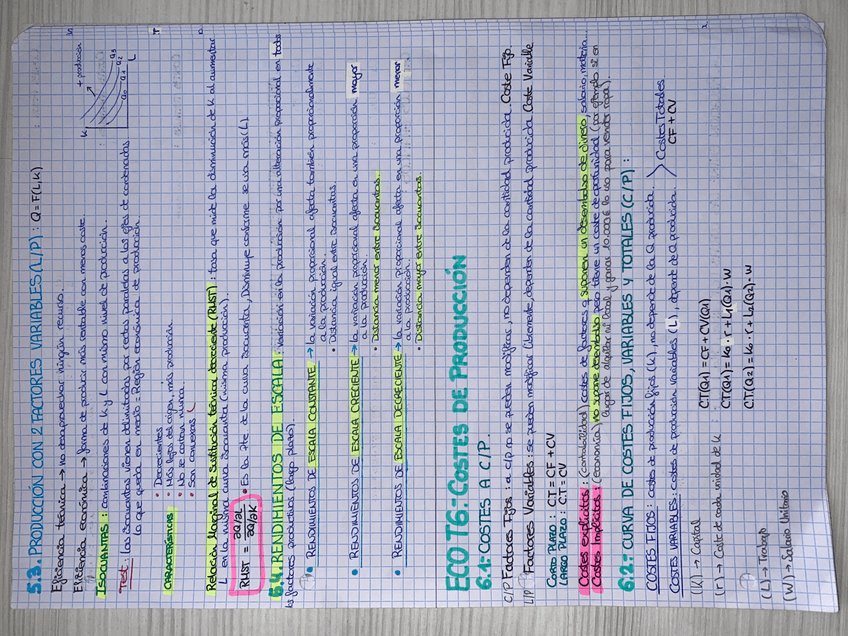 5.3. PRODUCCIÓN CON 2 FACTORES VARIABLES (L/P) : Q = F(L,K)
Eficiencia técnica → no desaprovechar ningún recurso.
Eficiencia económica → forma de producir más rentable con menos coste
ISOCUANTAS : combinaciones de K y L con mismo nivel de producción.
K
+ producción
Q3
Q2
Q1
Q0
L
Test: las isocuantas vienen delimitadas por rectas paralelas a los ejes de coordenadas
lo que queda en medio = Región económica de producción.
CARACTERÍSTICAS
• Decrecientes
• Más lejos del origen, más producción
• No se cortan nunca
• Son convexas
Relación Marginal de sustitución técnica decreciente (RMST) : tasa que mide la disminución de K al aumentar
L en la misma curva isocuanta (misma producción).
RMST = ∂Q/∂L / ∂Q/∂K
• Es la Pte de la curva Isocuanta, Disminuye conforme se usa más (L)
5.4. RENDIMIENTOS DE ESCALA : variación en la producción por una alteración proporcional en todos
los factores productivos (largo plazo).
• RENDIMIENTOS DE ESCALA CONSTANTE → la variación proporcional afecta también proporcionalmente
a la producción.
• Distancia igual entre isocuantas.
• RENDIMIENTOS DE ESCALA CRECIENTE → la variación proporcional afecta en una proporción mayor
a la producción.
• Distancia menor entre isocuantas.
• RENDIMIENTOS DE ESCALA DECRECIENTE → la variación proporcional afecta en una proporción menor
a la producción
• Distancia mayor entre isocuantas.
ECO T6: COSTES DE PRODUCCIÓN
6.1: COSTES A C/P.
C/P Factores Fijos : a c/p no se pueden modificar, no dependen de la cantidad producida. Coste Fijo.
L/P Factores Variables : se pueden modificar libremente, dependen de la cantidad producida Coste Variable
CORTO PLAZO : CT = CF + CV
LARGO PLAZO : CT = CV
Costes explícitos : (contabilidad) costes de factores q suponen un desembolso de dinero, salario, materia...
Costes Implícitos : (economía) no supone desembolso pero tiene un coste de oportunidad (por ejemplo si en
lugar de alquilar el local y ganar 10.000€ lo uso para vender ropa).
6.2: CURVA DE COSTES FIJOS, VARIABLES Y TOTALES (C/P) :
COSTES FIJOS : costes de producción fijos (K), no depende de la Q producida.
COSTES VARIABLES : costes de producción variables (L), depende de q producida.
Costes Totales
CF + CV
(K) → Capital
(r) → Coste de cada unidad de K
(L) → Trabajo
(W) → Salario Unitario
CT(Q1) = CF + CV(Q1)
CT(Q1) = K0 · r + L1(Q1) · W
CT(Q2) = K0 · r + L2(Q2) · W